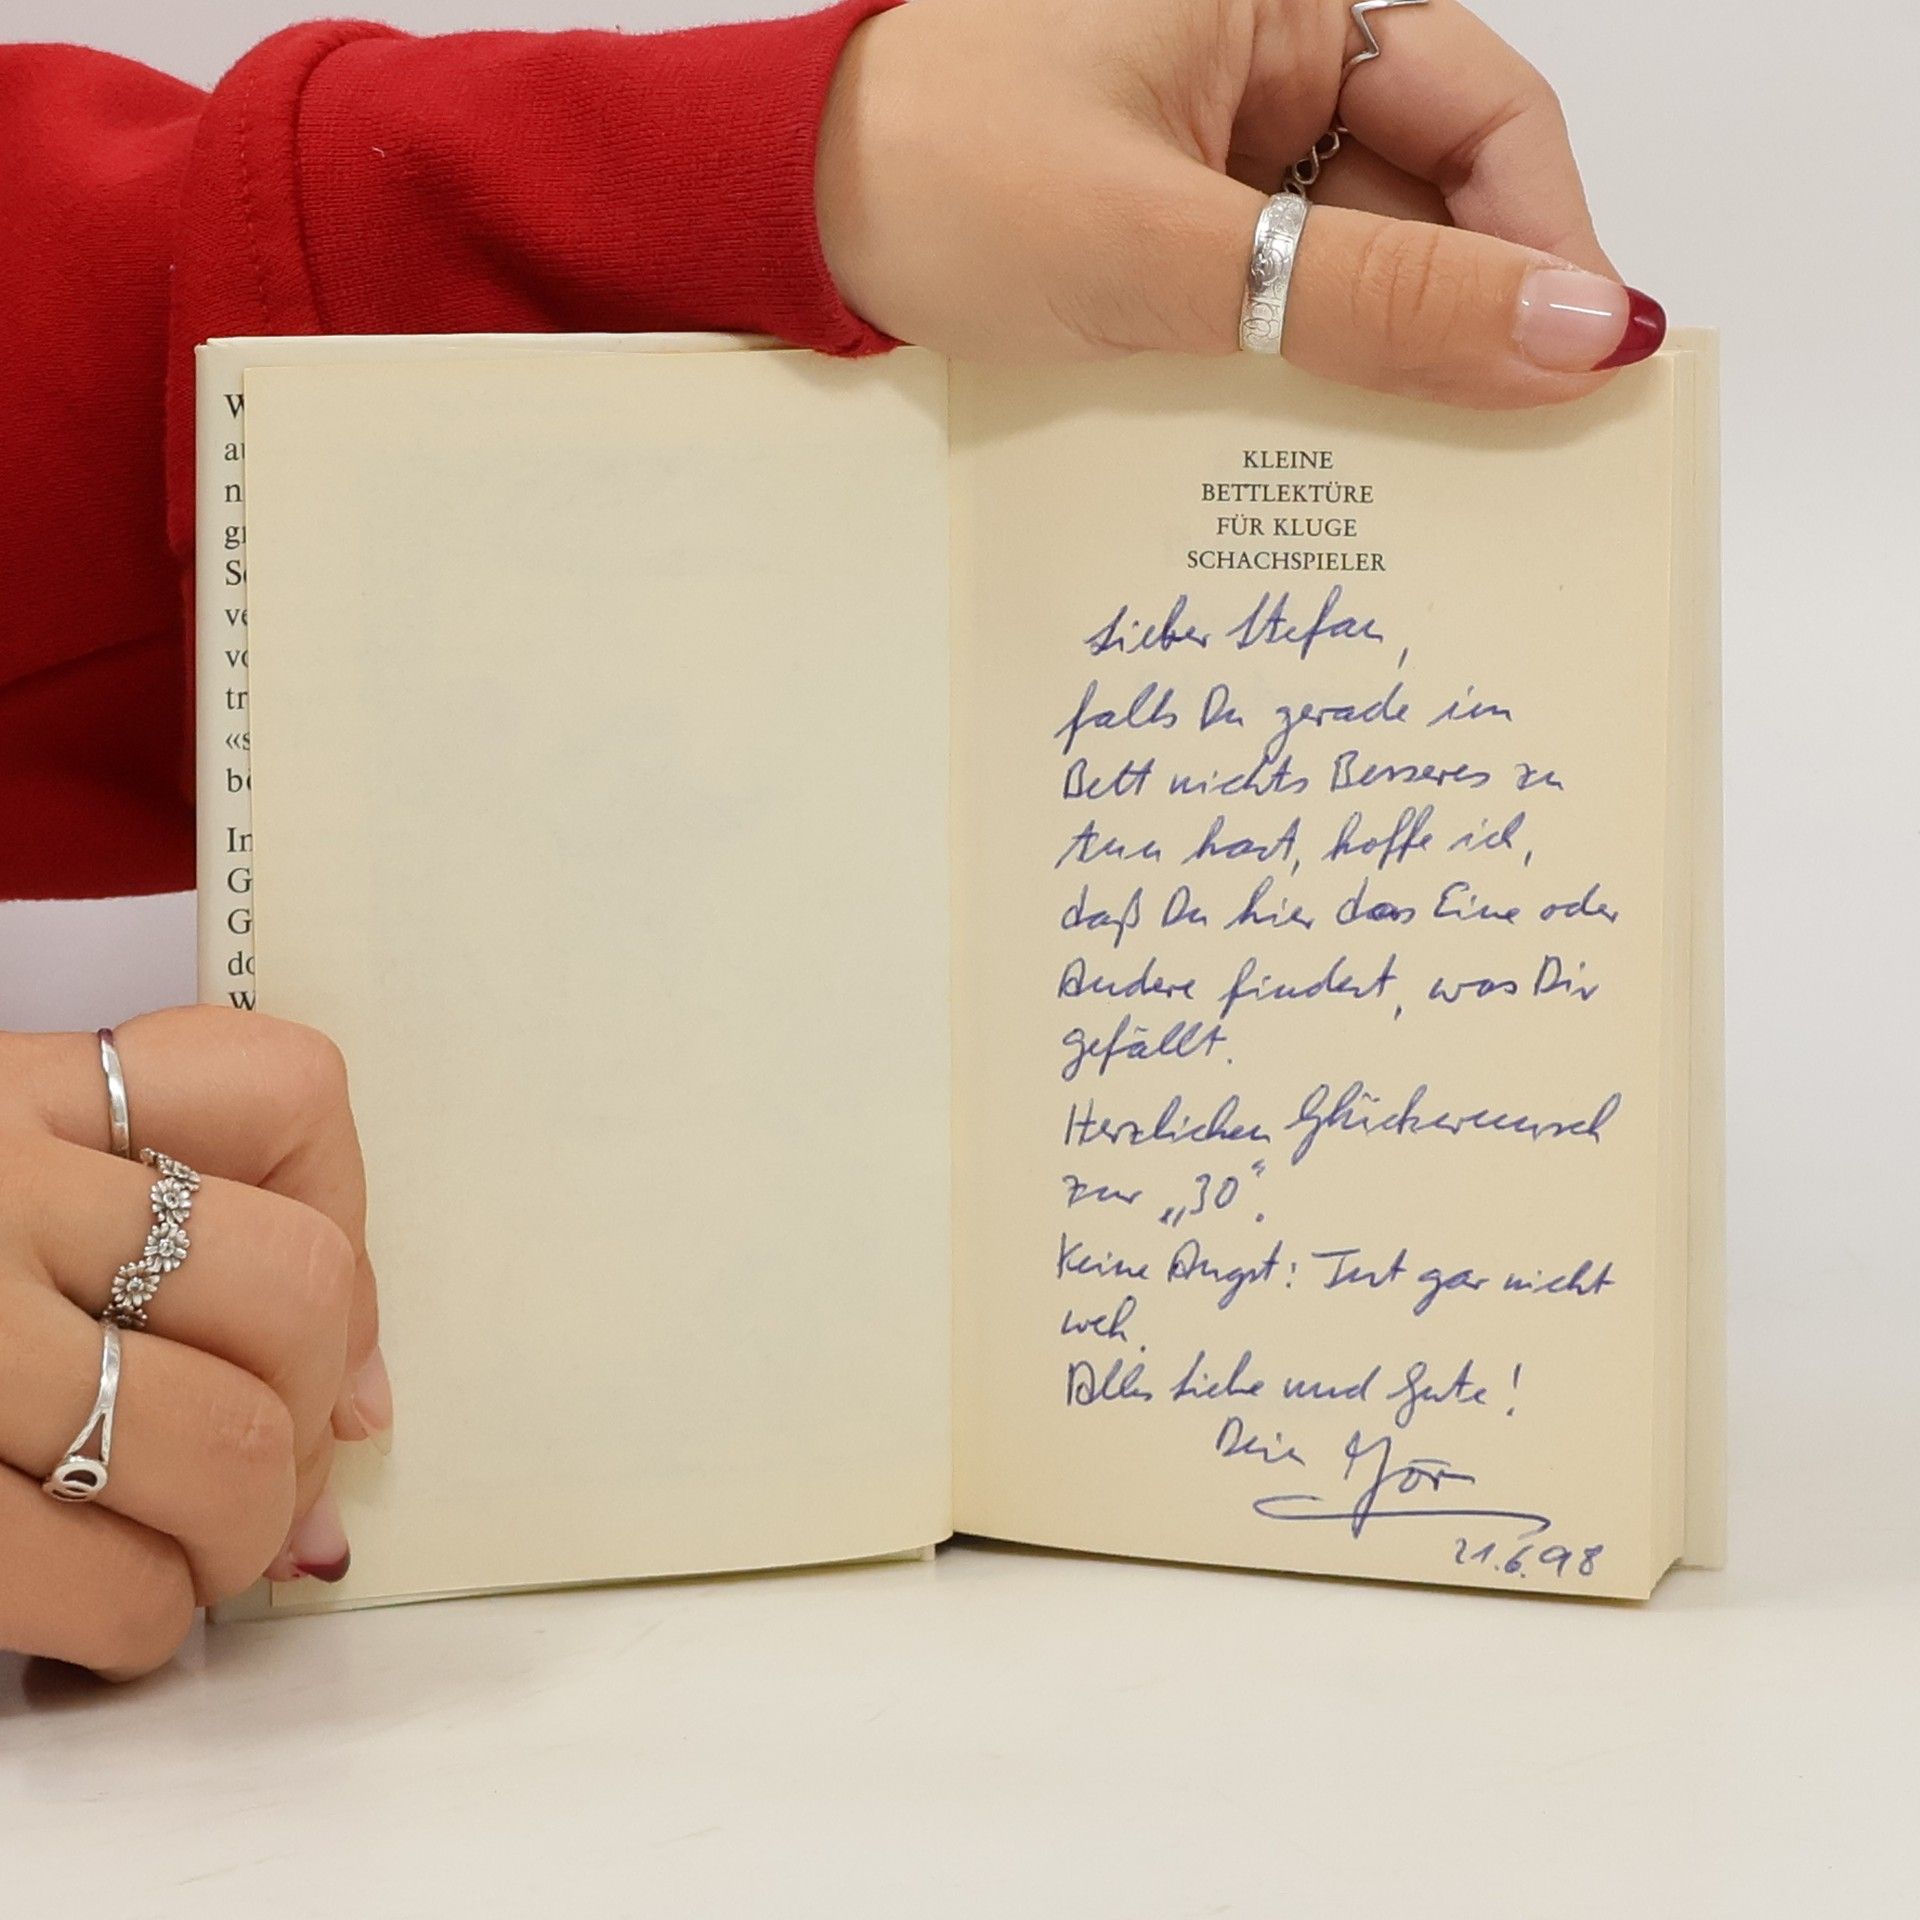 W
au
n
gr
Sc
ve
vo
tr
«s
bö
In
G
G
do
W
KLEINE
BETTLEKTÜRE
FÜR KLUGE
SCHACHSPIELER
Lieber Stefan,
falls Du gerade im
Bett nichts Besseres zu
tun hast, hoffe ich,
daß Du hier das Eine oder
Andere findest, was Dir
gefällt.
Herzlichen Glückwunsch
zur „30“.
Keine Angst: Tut gar nicht
weh.
Alles Liebe und Gute!
Dein
21.6.98